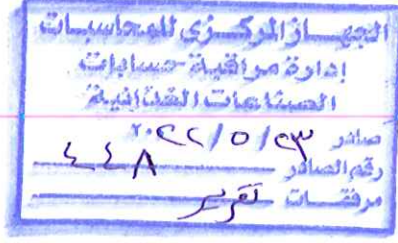 الجهاز المركزي للمحاسبات
إدارة مراقبة حسابات
الصناعات الغذائية
صادر ٢٠٢٢/٥/٢٣
رقم الصادر ٤٤٨
مرفقات تقرير